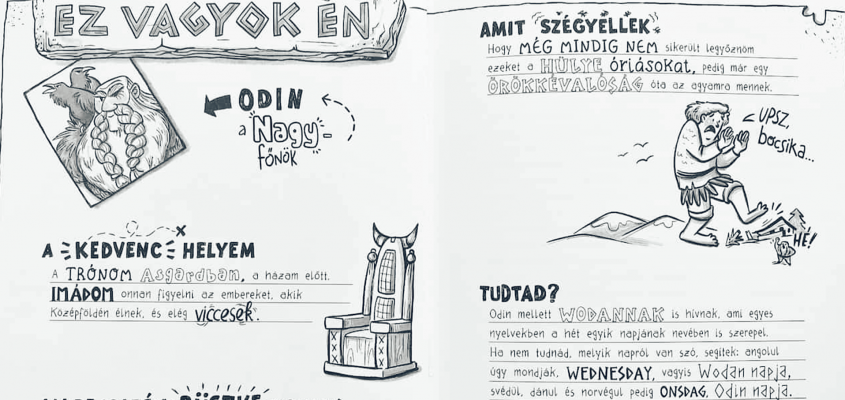 EZ VAGYOK ÉN
ODIN
a Nagy-
főnök
A KEDVENC HELYEM
A TRÓNOM Asgardban, a házam előtt.
IMÁDOM onnan figyelni az embereket, akik
Középföldén élnek, és elég viccesek.
BÜSZKE
AMIT SZÉGYELLEK
Hogy MÉG MINDIG NEM sikerült legyőznöm
ezeket a HÜLYE óriásokat, pedig már egy
ÖRÖKKÉVALÓSÁG óta az agyamra mennek.
UPSZ,
bocsika...
HÉ!
TUDTAD?
Odin mellett WODANNAK is hívnak, ami egyes
nyelvekben a hét egyik napjának nevében is szerepel.
Ha nem tudnád, melyik napról van szó, segítek: angolul
úgy mondják, WEDNESDAY, vagyis Wodan napja,
svédül, dánul és norvégul pedig ONSDAG, Odin napja.